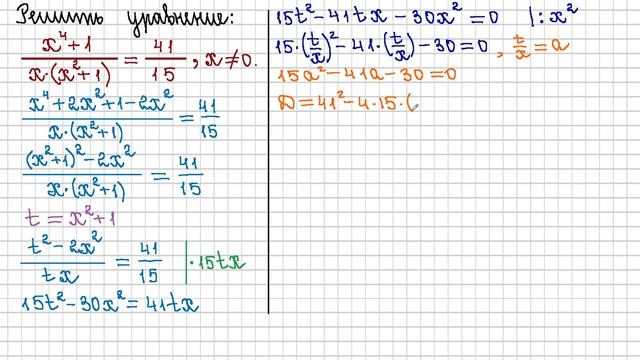 Решить уравнение:
(x⁴+1)/(x·(x²+1)) = 41/15, x≠0.
(x⁴+2x²+1-2x²)/(x·(x²+1)) = 41/15
((x²+1)²-2x²)/(x·(x²+1)) = 41/15
t = x²+1
(t²-2x²)/(tx) = 41/15 |·15tx
15t²-30x²=41tx
15t²-41tx-30x²=0 |:x²
15·(t/x)²-41·(t/x)-30=0, t/x=a
15a²-41a-30=0
D=41²-4·15·(